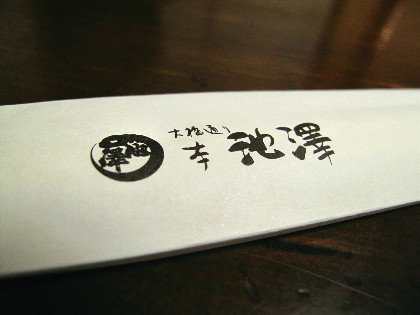 大橋通り
本池澤